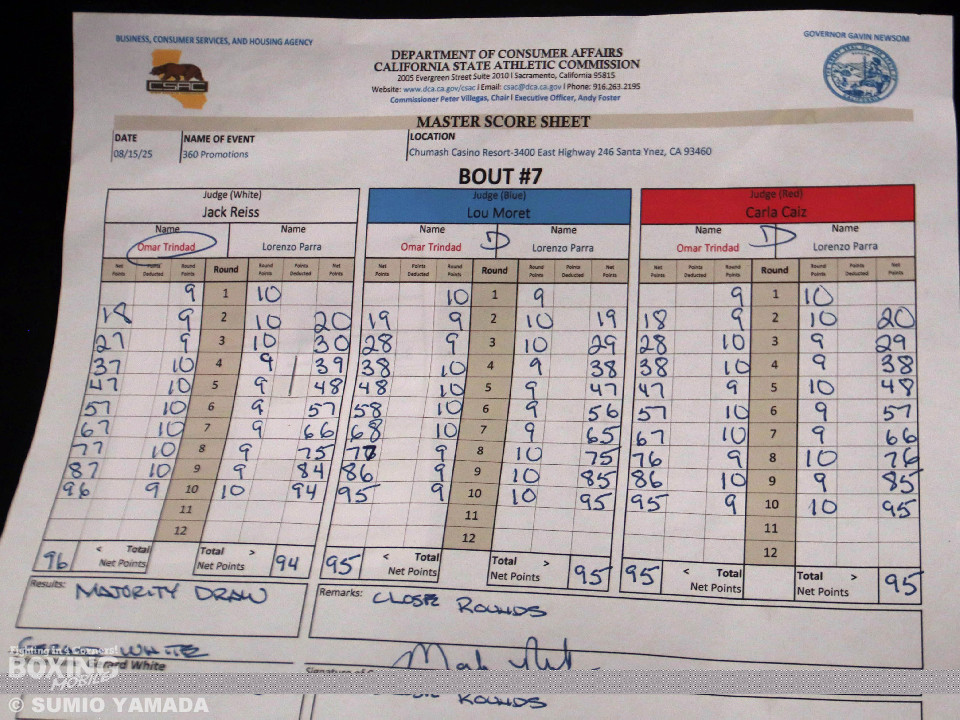 BUSINESS, CONSUMER SERVICES, AND HOUSING AGENCY
GOVERNOR GAVIN NEWSOM
CSAC
DEPARTMENT OF CONSUMER AFFAIRS
CALIFORNIA STATE ATHLETIC COMMISSION
2005 Evergreen Street Suite 2010 | Sacramento, California 95815
Website: www.dca.ca.gov/csac | Email: csac@dca.ca.gov | Phone: 916.263.2195
Commissioner Peter Villegas, Chair | Executive Officer, Andy Foster
MASTER SCORE SHEET
DATE NAME OF EVENT LOCATION
08/15/25 360 Promotions Chumash Casino Resort-3400 East Highway 246 Santa Ynez, CA 93460
BOUT #7
Judge (White) Judge (Blue) Judge (Red)
Jack Reiss Lou Moret Carla Caiz
Name Name Name Name Name Name
Omar Trindad Lorenzo Parra Omar Trindad D Lorenzo Parra Omar Trindad D Lorenzo Parra
Net Points Points Deducted Round Points Round Round Points Points Deducted Net Points Net Points Points Deducted Round Points Round Round Points Points Deducted Net Points Net Points Points Deducted Round Points Round Round Points Points Deducted Net Points
9 1 10 10 1 9 9 1 10
18 9 2 10 20 19 9 2 10 19 18 9 2 10 20
27 9 3 10 30 28 9 3 10 29 28 10 3 9 29
37 10 4 9 39 38 10 4 9 38 38 10 4 9 38
47 10 5 9 48 48 10 5 9 47 47 9 5 10 48
57 10 6 9 57 58 10 6 9 56 57 10 6 9 57
67 10 7 9 66 68 10 7 9 65 67 10 7 9 66
77 10 8 9 75 77 9 8 10 75 76 9 8 10 76
87 10 9 9 84 86 9 9 10 85 86 10 9 9 85
96 9 10 10 94 95 9 10 10 95 95 9 10 10 95
11 11 11
12 12 12
96 < Total Net Points Total > Net Points 94 95 < Total Net Points Total > Net Points 95 95 < Total Net Points Total > Net Points 95
Results: MAJORITY DRAW Remarks: CLOSE ROUNDS
WHITE
Fighting in 4 Corners!
BOXING
MOBILE
White
Signature of
ROUNDS
© SUMIO YAMADA